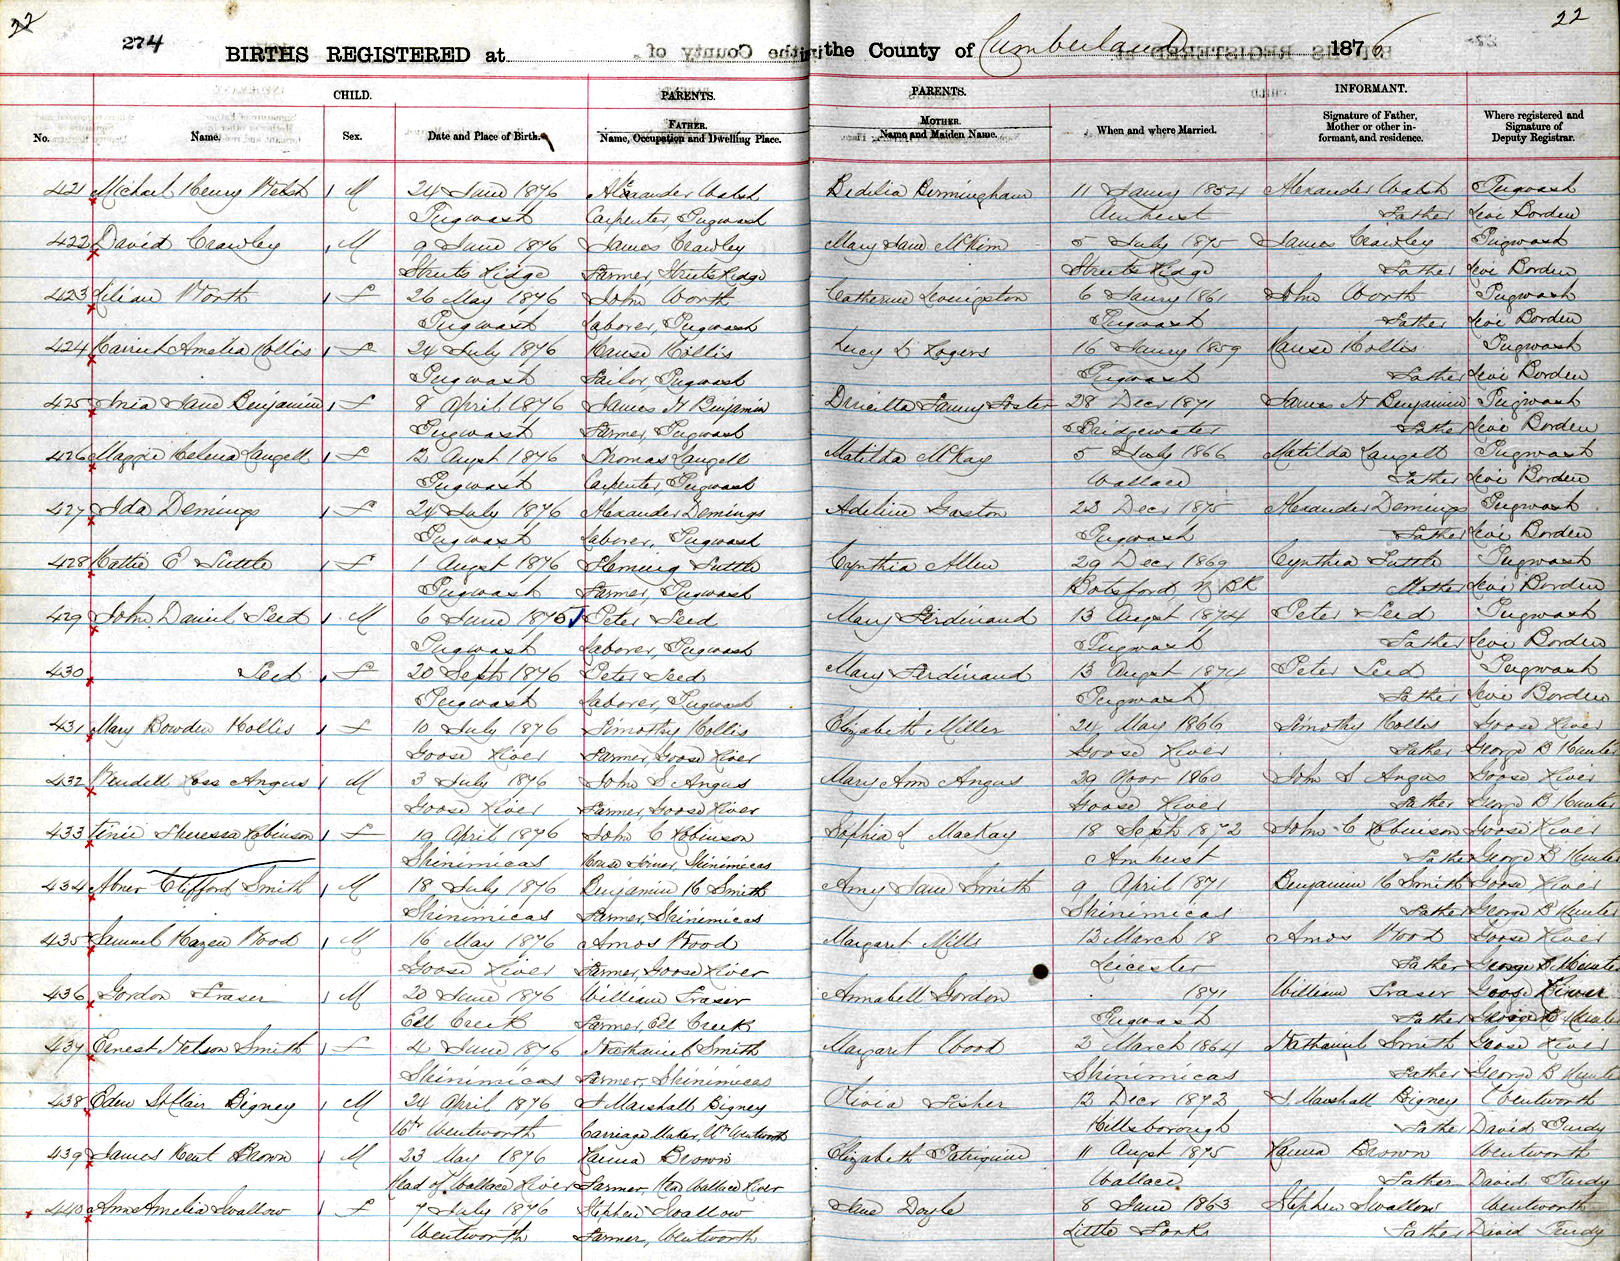 22 22
274
BIRTHS REGISTERED at in the County of Cumberland 1876
CHILD. PARENTS. PARENTS. INFORMANT.
No. Name. Sex. Date and Place of Birth. FATHER. Name, Occupation and Dwelling Place. MOTHER. Name and Maiden Name. When and where Married. Signature of Father, Mother or other informant, and residence. Where registered and Signature of Deputy Registrar.
421 Michael Henry Walsh M 24 June 1876 Alexander Walsh Bedelia Birmingham 11 Jany 1854 Alexander Walsh Pugwash
Pugwash Carpenter, Pugwash Amherst Father Levi Borden
422 David Crawley M 9 June 1876 James Crawley Mary Jane McKim 5 July 1875 James Crawley Pugwash
Streets Ridge Farmer, Streets Ridge Streets Ridge Father Levi Borden
423 Lilian Worth F 26 May 1876 John Worth Catherine Levingston 6 Jany 1861 John Worth Pugwash
Pugwash Laborer, Pugwash Pugwash Father Levi Borden
424 Harriet Amelia Hollis F 24 July 1876 Hause Hollis Lucy Rogers 16 Jany 1859 Hause Hollis Pugwash
Pugwash Sailor, Pugwash Pugwash Father Levi Borden
425 Jane Benjamin F 8 April 1876 James Benjamin Foster 28 Decr 1871 James Benjamin Pugwash
Pugwash Farmer, Pugwash Bridgewater Father Levi Borden
426 Maggie Helena Langell F 12 Augst 1876 Thomas Langell Matilda McKay 5 July 1866 Matilda Langell Pugwash
Pugwash Carpenter, Pugwash Wallace Father Levi Borden
427 Ida Demings F 24 July 1876 Alexander Demings Adeline Gaston 23 Decr 1875 Alexander Demings Pugwash
Pugwash Laborer, Pugwash Pugwash Father Levi Borden
428 Hattie E Tuttle F 1 August 1876 Fleming Tuttle Cynthia Allen 29 Decr 1869 Cynthia Tuttle Pugwash
Pugwash Farmer, Pugwash Botsford, N BK Mother Levi Borden
429 John Daniel Seed M 6 June 1875 Peter Seed Mary Ferdinand 13 Augst 1874 Peter Seed Pugwash
Pugwash Laborer, Pugwash Pugwash Father Levi Borden
430 Seed F 20 Sept 1876 Peter Seed Mary Ferdinand 13 August 1874 Peter Seed Pugwash
Pugwash Laborer, Pugwash Pugwash Father Levi Borden
431 Mary Bowden Hollis F 10 July 1876 Timothy Hollis Elizabeth Miller 24 May 1866 Timothy Hollis Goose River
Goose River Farmer, Goose River Goose River Father George B Hunter
432 Wendell Ross Angus M 3 July 1876 John S Angus Mary Ann Angus 29 1860 John S Angus Goose River
Goose River Farmer, Goose River Goose River Father George B Hunter
433 Theressa Robinson F 19 April 1876 John C Robinson Sophia L MacKay 18 Sept 1872 John C Robinson Goose River
Shinimicas House Joiner, Shinimicas Amherst Father George B Hunter
434 Abner Clifford Smith M 18 July 1876 Benjamin H Smith Amy Jane Smith 9 April 1871 Benjamin H Smith Goose River
Shinimicas Farmer, Shinimicas Shinimicas Father George B Hunter
435 Samuel Hazen Wood M 16 May 1876 Amos Wood Margaret Mills 13 March 18 Amos Wood Goose River
Goose River Farmer, Goose River Leicester Father George B Hunter
436 Gordon Fraser M 20 June 1876 William Fraser Annabell Gordon 1871 William Fraser Goose River
Eel Creek Farmer, Eel Creek Pugwash Father George B Hunter
437 Ernest Nelson Smith F 4 June 1876 Nathaniel Smith Margaret Wood 2 March 1864 Nathaniel Smith Goose River
Shinimicas Farmer, Shinimicas Shinimicas Father George B Hunter
438 Eden StClair Bigney M 24 April 1876 J Marshall Bigney Olivia Fisher 12 Decr 1872 J Marshall Bigney Wentworth
Wentworth Carriage Maker, Wentworth Hillsborough Father David Purdy
439 James Kent Brown M 23 May 1876 Brown Elizabeth Patriquin 11 Augst 1875 Brown Wentworth
Head of Wallace River Farmer, Wallace River Wallace Father David Purdy
440 Ann Amelia Swallow F 7 July 1876 Stephen Swallow Jane Doyle 8 June 1863 Stephen Swallow Wentworth
Wentworth Farmer, Wentworth Little Forks Father David Purdy